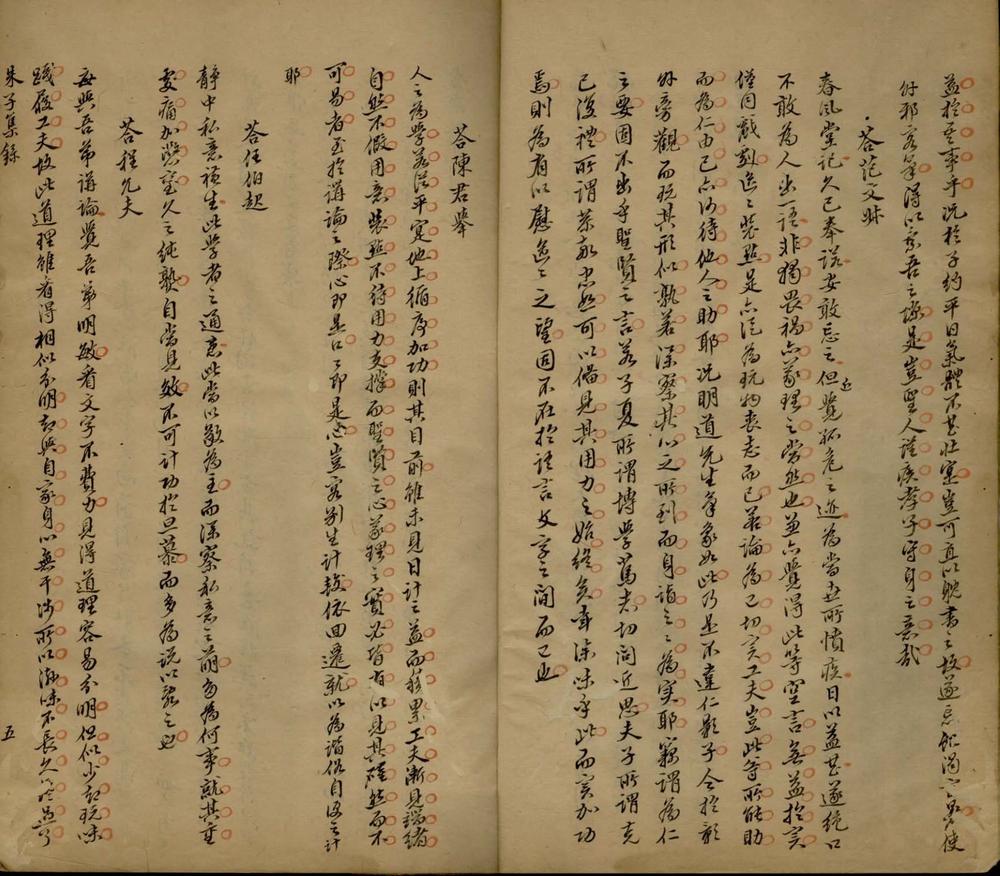 益於吾事乎況於子約平日氣體不甚壯實豈可直以耽書之故遂忘飢渴寒暑使
外邪客氣得以乘吾之隙是豈聖人謹疾孝子守身之意哉
答范文叔
春風堂記久已奉諾安敢忘之但覺孤危之迹為當世所憤疾日以益甚遂絕口
不敢為人出一語非獨畏禍亦義理之當然也並亦覺得此等空言無益於實
僅同戲劇區區裝點是亦徒為玩物喪志而已若論為己切實工夫豈此等所能助
而為仁由己亦何待他人之助耶況明道先生氣象如此乃是不違仁影子今於影
外旁觀而玩其形似孰若深察其心之所到而身詣之之為實耶竊謂為仁
之要固不出乎聖賢之言若子夏所謂博學篤志切問近思夫子所謂克
己復禮所謂恭敬忠恕可以備見其用力之始終矣幸深味乎此而實加功
焉則為有以慰區區之望固不在於語言文字之間而已也
答陳君舉
人之為學若從平實地上循序加功則其目前雖未見日計之益而積累工夫漸見端緒
自然不假用意裝點不待用力支撐而聖賢之心義理之實必皆有以見其確然而不
可易者至於講論之際心即是口口即是心豈容別生計較依回遷就以為諧俗自便之計
耶
答任伯起
靜中私意橫生此學者之通患此當以敬為主而深察私意之萌多為何事就其重
處痛加懲窒久之純熟自當見效不可計功於旦暮而多為說以亂之也
答程允夫
每與吾弟講論覺吾弟明敏看文字不費力見得道理容易分明但似少却玩味
踐履工夫故此道理雖看得相似分明却與自家身心無干涉所以滋味不長久
朱子集錄
五